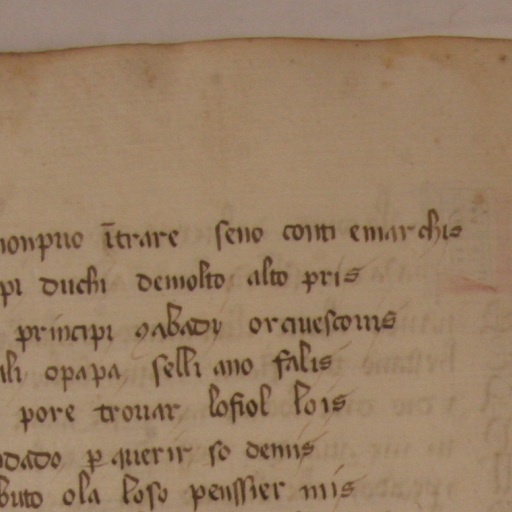 nonpuo ītrare seno conti emarchis
pi duchi demolto alto pris
principi ꝯabady orciuescouis
ali opapa selli ano falis
pore trouar lofiol lois
odado ꝑ querir so demis
buto ola loso penssier mis